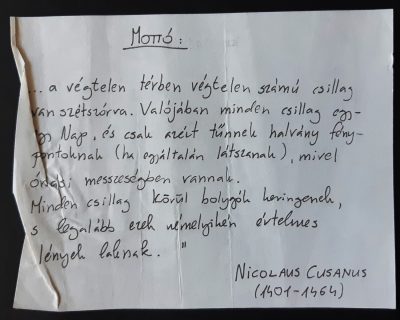 Mottó:
... a végtelen térben végtelen számú csillag
van szétszórva. Valójában minden csillag egy-
egy Nap, és csak azért tűnnek halvány fény-
pontoknak (ha egyáltalán látszanak), mivel
óriási messzeségben vannak.
Minden csillag körül bolygók keringenek,
s legalább ezek némelyikén értelmes
lények laknak. "
NICOLAUS CUSANUS
(1401-1464)